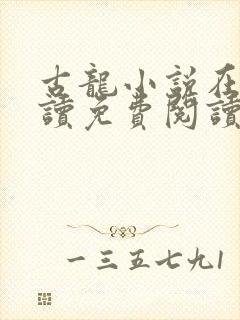 古龍小説在
讀免費閱讀
一三五七九1